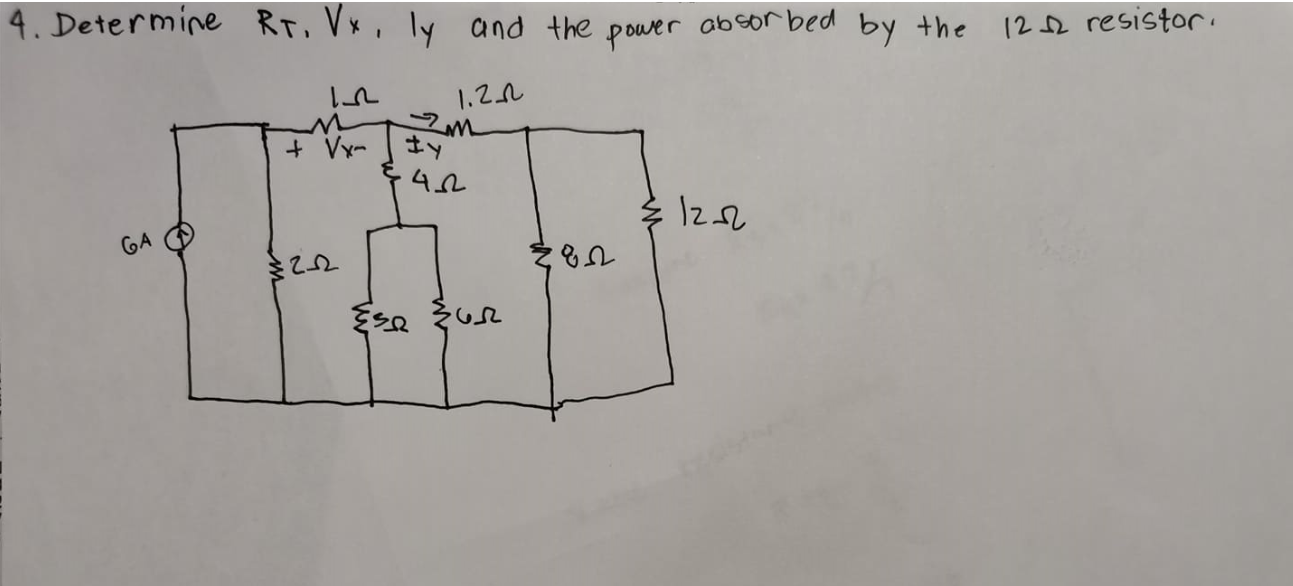 4. Determine RT, Vx, Iy and the power absorbed by the 12Ω resistor.
1Ω
1.2Ω
+ Vx -
Iy
4Ω
12Ω
6A
2Ω
8Ω
3Ω
6Ω